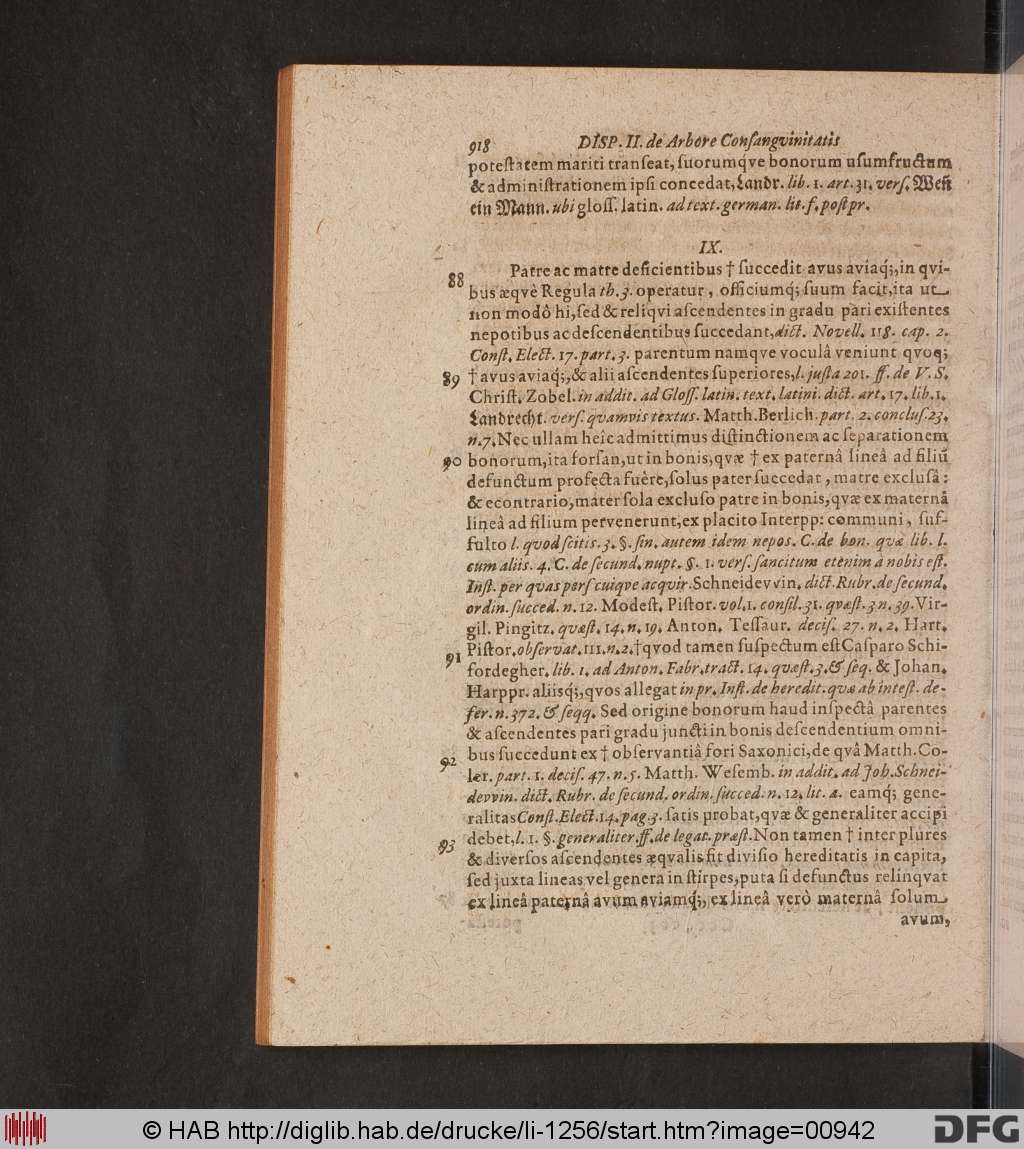 918 DISP. II. de Arbore Conſangvinitatis
poteſtatem mariti tranſeat, ſuorumqve bonorum uſumfructum
& adminiſtrationem ipſi concedat, Landr. lib. 1. art. 31. verſ. Weñ
ein Mann. ubi gloſſ. latin. ad text. german. lit. f. poſt pr.
IX.
88 Patre ac matre deficientibus † ſuccedit avus aviaq́;, in qvi-
bus æqvè Regula th. 3. operatur, officiumq́; ſuum facit, ita ut
non modô hi, ſed & reliqvi aſcendentes in gradu pari exiſtentes
nepotibus ac deſcendentibus ſuccedant, dict. Novell. 118. cap. 2.
Conſt. Elect. 17. part. 3. parentum namqve voculâ veniunt qvoq;
89 † avus aviaq́;, & alii aſcendentes ſuperiores, l. juſta 201. ff. de V. S.
Chriſt. Zobel. in addit. ad Gloſſ. latin. text. latini. dict. art. 17. lib. 1.
Landrecht. verſ. qvamvis textus. Matth. Berlich. part. 2. concluſ. 23.
n. 7. Nec ullam heîc admittimus diſtinctionem ac ſeparationem
90 bonorum, ita forſan, ut in bonis, qvæ † ex paternâ lineâ ad filiũ
defunctum profecta fuêre, ſolus pater ſuccedat, matre excluſâ:
& econtrario, mater ſola excluſo patre in bonis, qvæ ex maternâ
lineâ ad filium pervenerunt, ex placito Interpp: communi, ſuf-
fulto l. quod ſcitis. 3. §. ſin. autem idem nepos. C. de bon. quæ lib. l.
cum aliis. 4. C. de ſecund. nupt. §. 1. verſ. ſancitum etenim à nobis eſt.
Inſt. per quas perſ cuiqve acqvir. Schneidevvin. dict. Rubr. de ſecund.
ordin. ſucced. n. 12. Modeſt. Piſtor. vol. 1. conſil. 31. quæſt. 3. n. 39. Vir-
gil. Pingitz. quæſt. 14. n. 19. Anton. Teſſaur. deciſ. 27. n. 2. Hart.
91 Piſtor. obſervat. 111. n. 2. † qvod tamen ſuſpectum eſt Caſparo Schi-
fordegher. lib. 1. ad Anton. Fabr. tract. 14. quæſt. 3. & ſeq. & Johan.
Harppr. aliisq́;, qvos allegat in pr. Inſt. de heredit. quæ ab inteſt. de-
fer. n. 372. & ſeqq. Sed origine bonorum haud inſpectâ parentes
& aſcendentes pari gradu juncti in bonis deſcendentium omni-
92 bus ſuccedunt ex † obſervantiâ fori Saxonici, de qvâ Matth. Co-
ler. part. 1. deciſ. 47. n. 5. Matth. Weſemb. in addit. ad Joh. Schnei-
devvin. dict. Rubr. de ſecund. ordin. ſucced. n. 12. lit. a. eamq́; gene-
ralitas Conſt. Elect. 14. pag. 3. ſatis probat, qvæ & generaliter accipi
93 debet, l. 1. §. generaliter. ff. de legat. præſt. Non tamen † inter plures
& diverſos aſcendentes æqvalis fit diviſio hereditatis in capita,
ſed juxta lineas vel genera in ſtirpes, puta ſi defunctus relinqvat
ex lineâ paternâ avum aviamq́;, ex lineâ verò maternâ ſolum
avum,
© HAB http://diglib.hab.de/drucke/li-1256/start.htm?image=00942
DFG